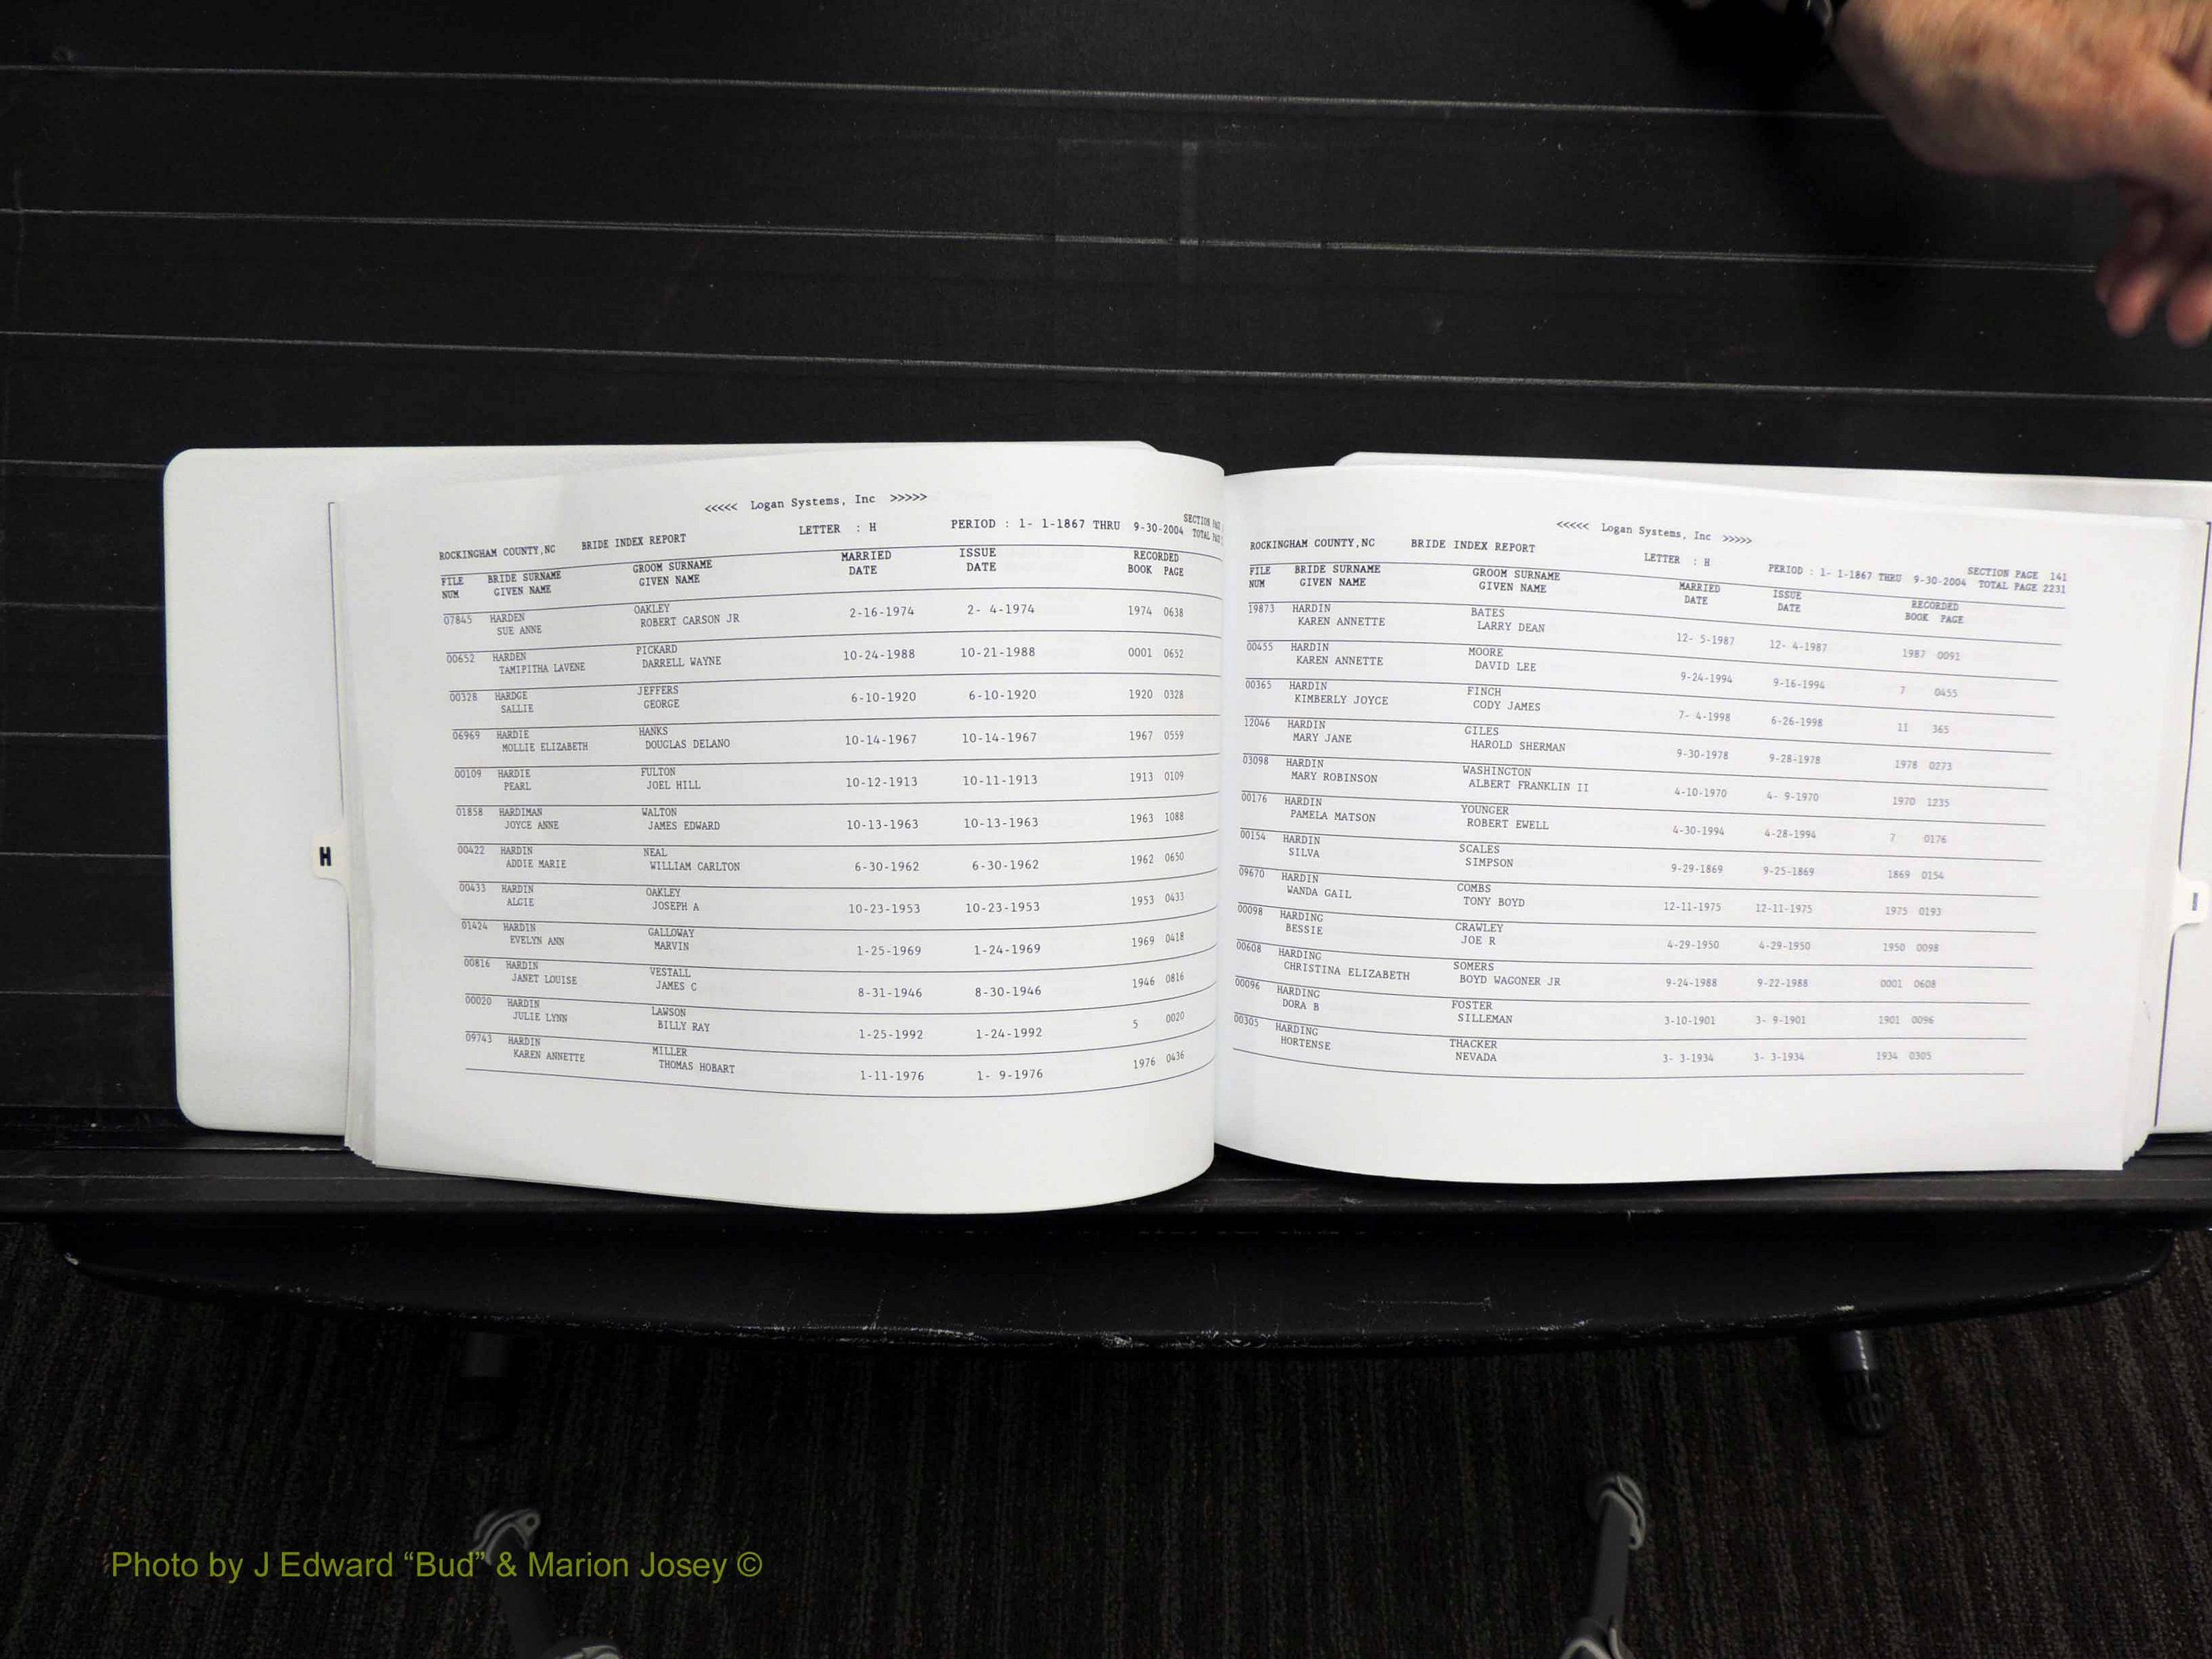 <<<<< Logan Systems, Inc >>>>>
ROCKINGHAM COUNTY,NC BRIDE INDEX REPORT LETTER : H PERIOD : 1- 1-1867 THRU 9-30-2004 SECTION TOTAL
FILE BRIDE SURNAME GROOM SURNAME MARRIED ISSUE RECORDED
NUM GIVEN NAME GIVEN NAME DATE DATE BOOK PAGE
07845 HARDEN OAKLEY 2-16-1974 2- 4-1974 1974 0638
SUE ANNE ROBERT CARSON JR
00652 HARDEN PICKARD 10-24-1988 10-21-1988 0001 0652
TAMIPITHA LAVENE DARRELL WAYNE
00328 HARDGE JEFFERS 6-10-1920 6-10-1920 1920 0328
SALLIE GEORGE
06969 HARDIE HANKS 10-14-1967 10-14-1967 1967 0559
MOLLIE ELIZABETH DOUGLAS DELANO
00109 HARDIE FULTON 10-12-1913 10-11-1913 1913 0109
PEARL JOEL HILL
01858 HARDIMAN WALTON 10-13-1963 10-13-1963 1963 1088
JOYCE ANNE JAMES EDWARD
00422 HARDIN NEAL 6-30-1962 6-30-1962 1962 0650
ADDIE MARIE WILLIAM CARLTON
00433 HARDIN OAKLEY 10-23-1953 10-23-1953 1953 0433
ALGIE JOSEPH A
01424 HARDIN GALLOWAY 1-25-1969 1-24-1969 1969 0418
EVELYN ANN MARVIN
00816 HARDIN VESTALL 8-31-1946 8-30-1946 1946 0816
JANET LOUISE JAMES C
00020 HARDIN LAWSON 1-25-1992 1-24-1992 5 0020
JULIE LYNN BILLY RAY
09743 HARDIN MILLER 1-11-1976 1- 9-1976 1976 0436
KAREN ANNETTE THOMAS HOBART
H
<<<<< Logan Systems, Inc >>>>>
ROCKINGHAM COUNTY,NC BRIDE INDEX REPORT LETTER : H PERIOD : 1- 1-1867 THRU 9-30-2004 SECTION PAGE 141
TOTAL PAGE 2231
FILE BRIDE SURNAME GROOM SURNAME MARRIED ISSUE RECORDED
NUM GIVEN NAME GIVEN NAME DATE DATE BOOK PAGE
19873 HARDIN BATES 12- 5-1987 12- 4-1987 1987 0091
KAREN ANNETTE LARRY DEAN
00455 HARDIN MOORE 9-24-1994 9-16-1994 7 0455
KAREN ANNETTE DAVID LEE
00365 HARDIN FINCH 7- 4-1998 6-26-1998 11 365
KIMBERLY JOYCE CODY JAMES
12046 HARDIN GILES 9-30-1978 9-28-1978 1978 0273
MARY JANE HAROLD SHERMAN
03098 HARDIN WASHINGTON 4-10-1970 4- 9-1970 1970 1235
MARY ROBINSON ALBERT FRANKLIN II
00176 HARDIN YOUNGER 4-30-1994 4-28-1994 7 0176
PAMELA MATSON ROBERT EWELL
00154 HARDIN SCALES 9-29-1869 9-25-1869 1869 0154
SILVA SIMPSON
09670 HARDIN COMBS 12-11-1975 12-11-1975 1975 0193
WANDA GAIL TONY BOYD
00098 HARDING CRAWLEY 4-29-1950 4-29-1950 1950 0098
BESSIE JOE R
00608 HARDING SOMERS 9-24-1988 9-22-1988 0001 0608
CHRISTINA ELIZABETH BOYD WAGONER JR
00096 HARDING FOSTER 3-10-1901 3- 9-1901 1901 0096
DORA B SILLEMAN
00305 HARDING THACKER 3- 3-1934 3- 3-1934 1934 0305
HORTENSE NEVADA
I
Photo by J Edward “Bud” & Marion Josey ©